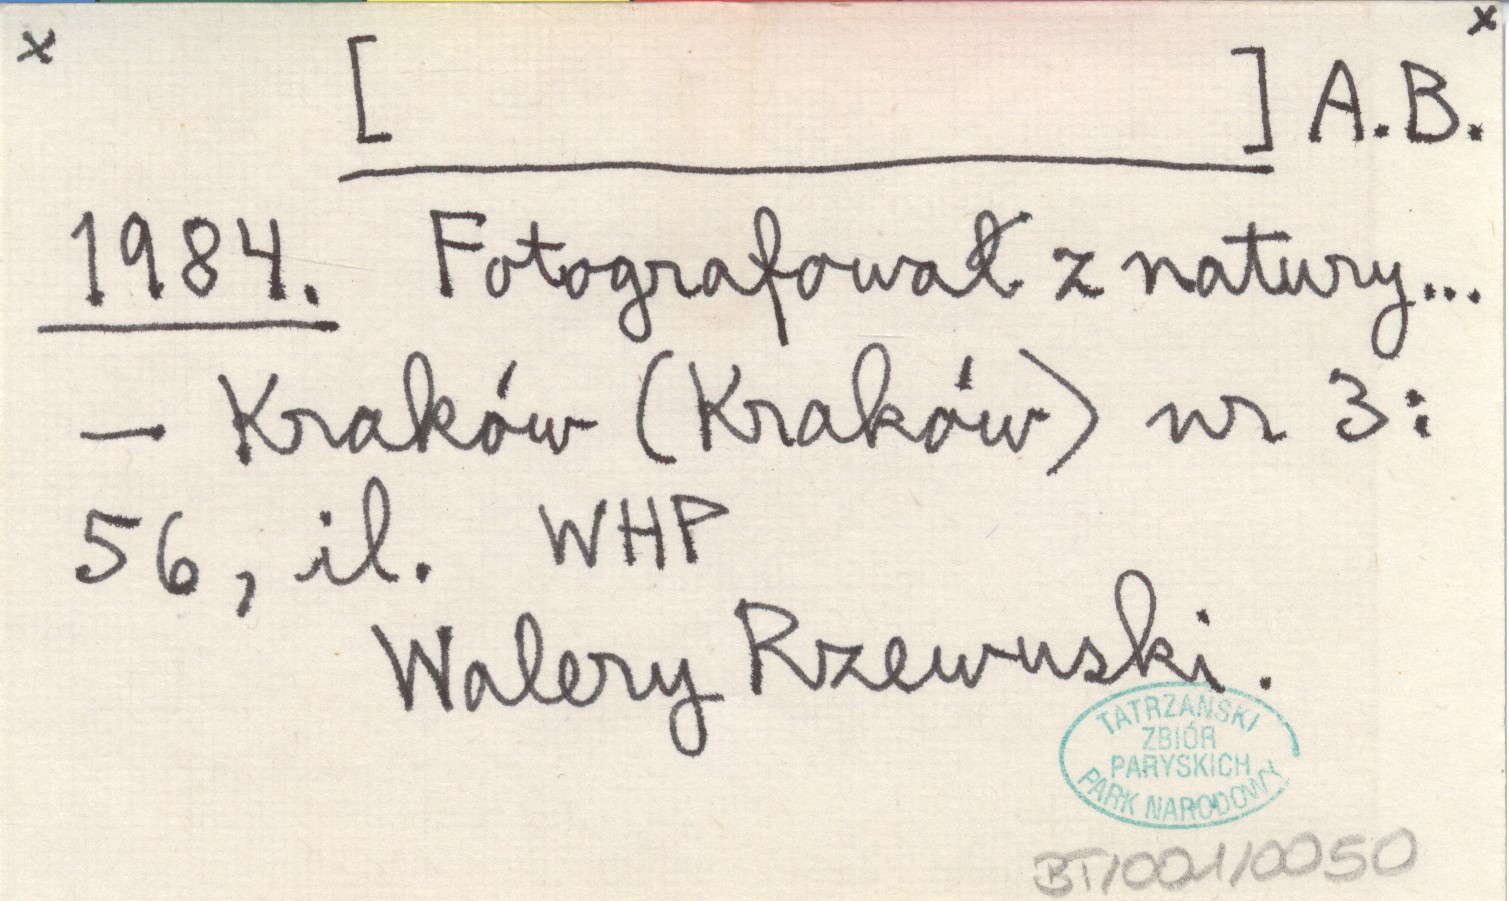 x x
[ ] A.B.
1984. Fotografował z natury...
— Kraków (Kraków) nr 3:
56, il. WHP
Walery Rzewuski.
TATRZAŃSKI
ZBIÓR
PARYSKICH
PARK NARODOWY
BT/001/0050